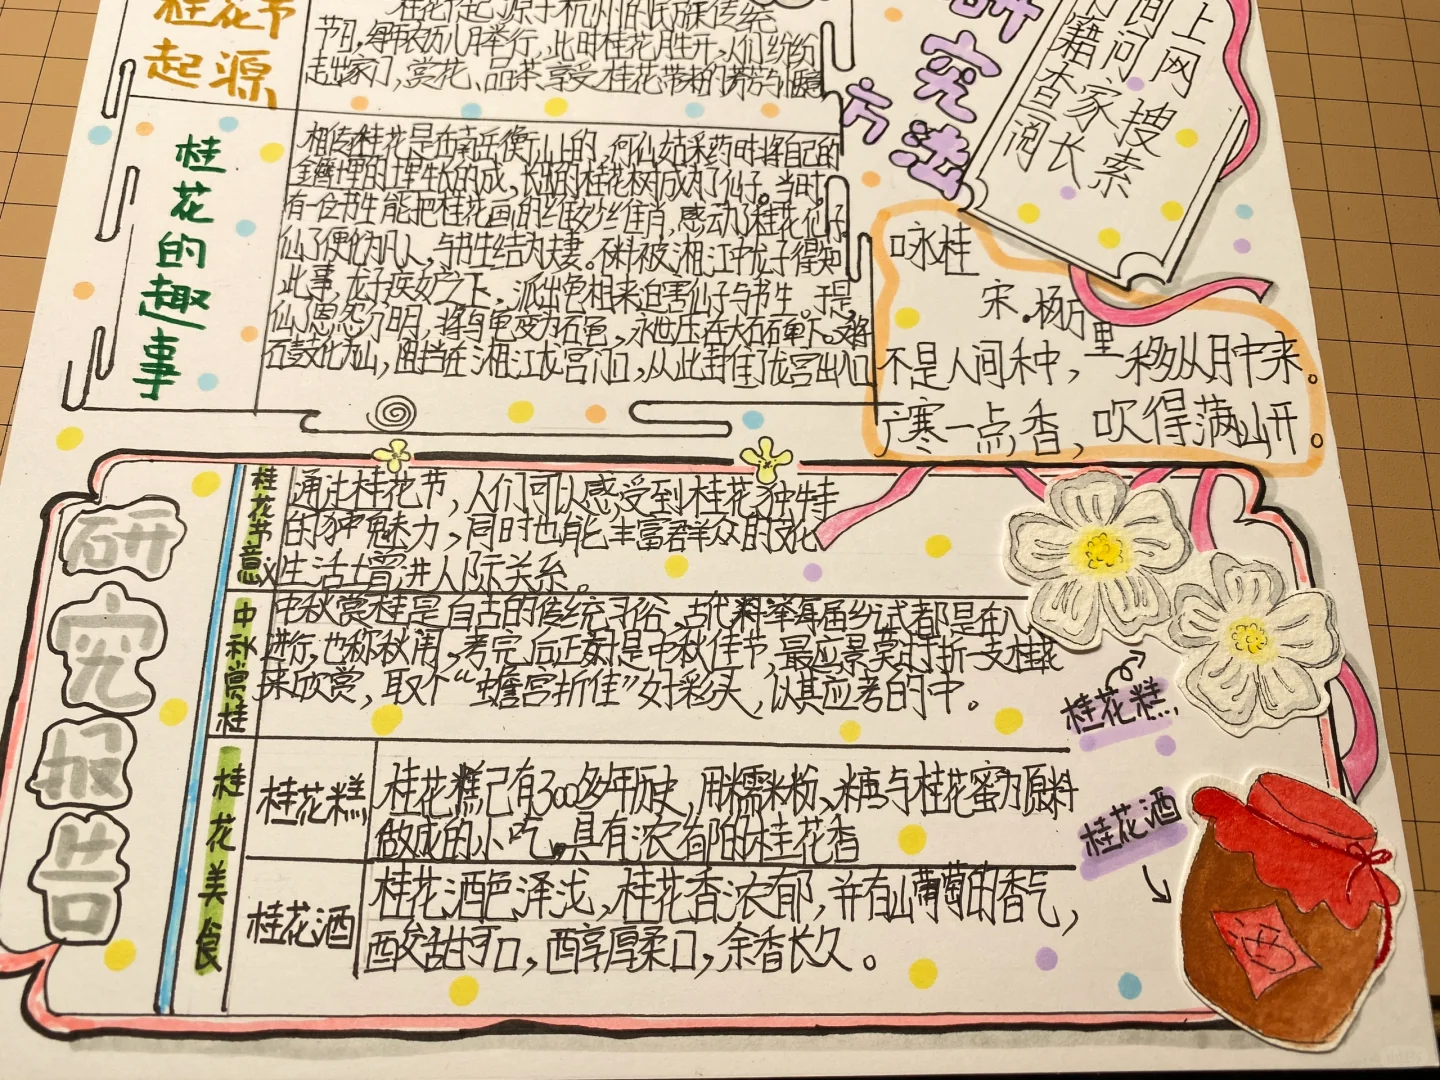 桂花节
起源
桂花节起源于杭州的民族传统
节日,每年农历八月举行,此时桂花盛开,人们纷纷
走出家门,赏花、品茶、享受桂花带来的芬芳
桂花的趣事
相传桂花是在南岳衡山上的,何仙姑采药时将自己的
金钗埋的土里生长的成,长出的桂花树成为了仙子。当时,
有一位书生能把桂花画的维妙维肖,感动了桂花仙子
仙子便化为凡人,与书生结为夫妻。不料被湘江中龙子得知
此事,龙子疾妒之下,派出龟相来迫害仙子与书生。于是,
仙子恩怨分明,将乌龟变为石龟,永世压在大石
石鼓化为山,阻挡在湘江龙宫门口,从此封住了龙宫出入
研究方法
上网搜索
询问家长
书籍查阅
咏桂
宋.杨万里
不是人间种,移从月中来。
广寒一点香,吹得满山开。
研究报告
桂花节意义
通过桂花节,人们可以感受到桂花独特
的魅力,同时也能丰富群众的文化
生活增进人际关系。
中秋赏桂
中秋赏桂是自古的传统习俗,古代科举每届乡试都是在八
进行,也称秋闱,考完后正好是中秋佳节,最应景莫过于折一支桂花
来欣赏,取个“蟾宫折佳”好彩头,以其应考的中。
桂花美食
桂花糕
桂花糕己有300多年历史,用糯米粉、米唐与桂花蜜为原料
做成的小吃,具有浓郁的桂花香
桂花酒
桂花酒色泽浅,桂花香浓郁,并有山葡萄的香气,
酸甜可口,醇厚柔口,余香长久。
桂花糕
桂花酒
酒